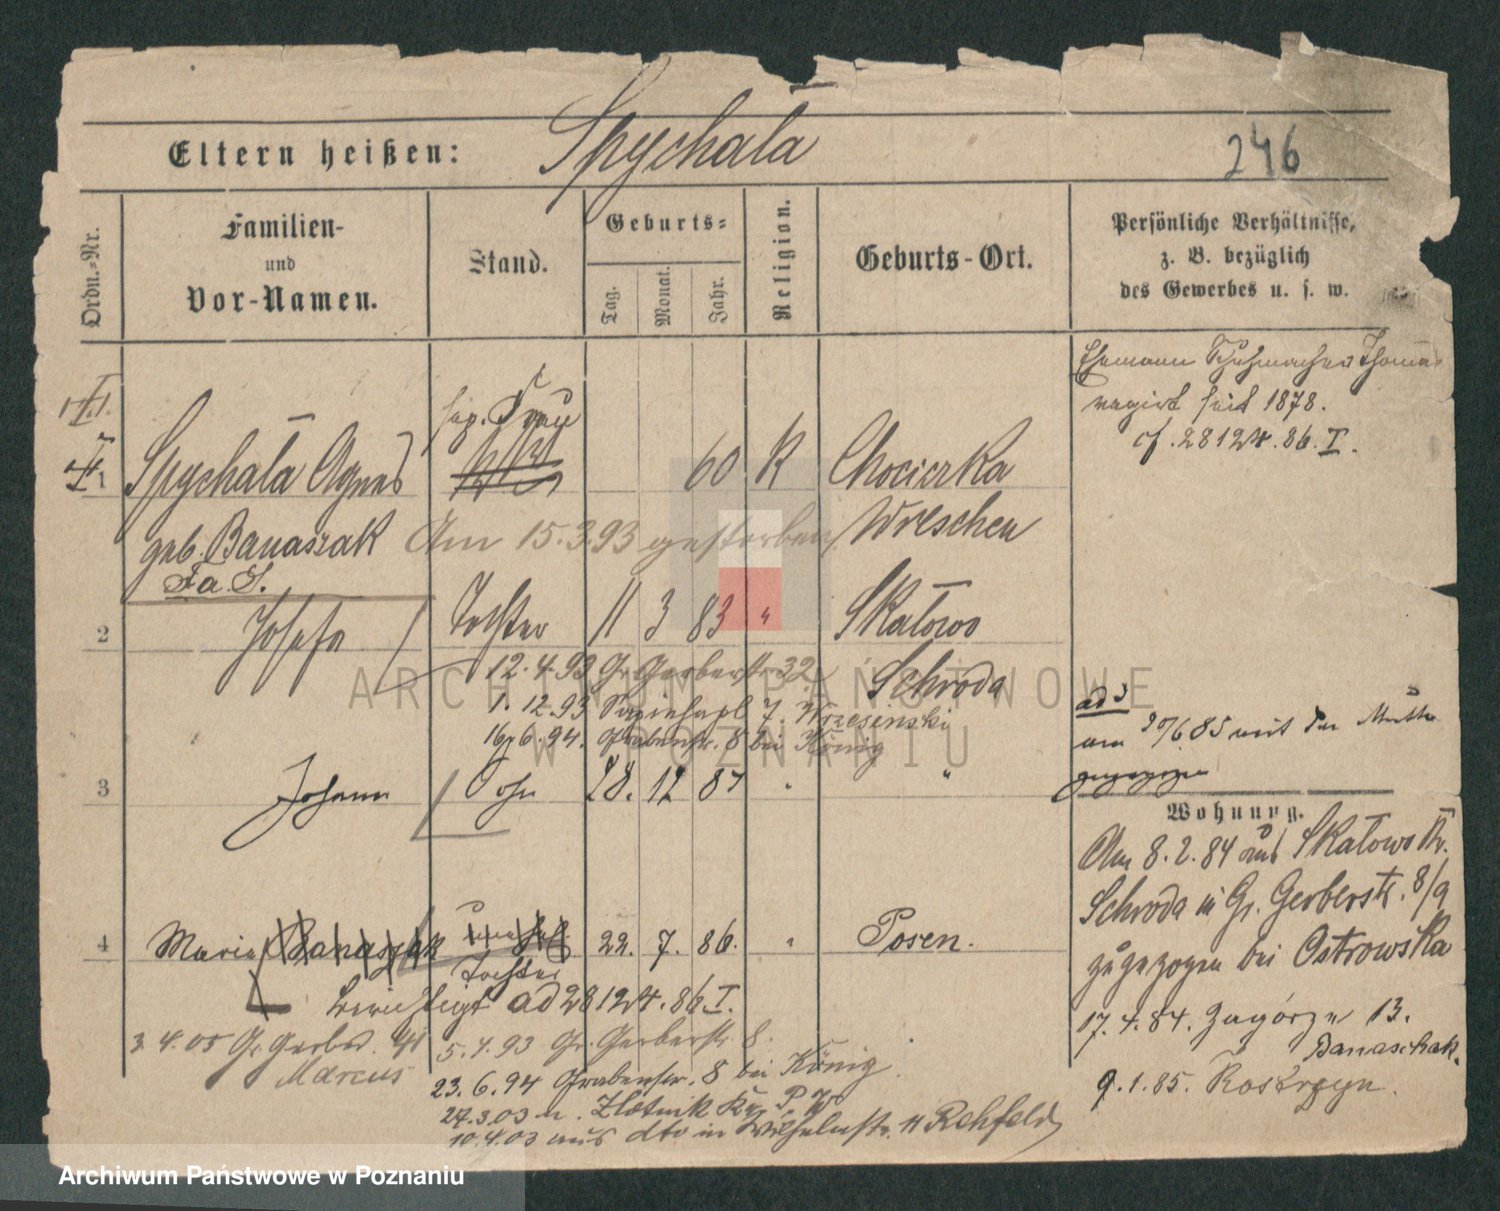 Eltern heißen: Spychała
246
Ordn.-Nr.
Familien-
und
Vor-Namen.
Stand.
Geburts-
Tag.
Monat.
Jahr.
Religion.
Geburts-Ort.
Persönliche Verhältnisse,
z. B. bezüglich
des Gewerbes u. s. w.
Ehemann Schuhmacher Thomas
vagirt seit 1878.
cf. 28124.86.I.
sep. Frau
1 Spychała Agnes 60 K Chociczka
geb. Banaszak Wreschen
Am 15.3.93 gestorben
Fa. S.
2 Josefa Tochter 11 3 83 " Skałowo
Schroda
12.4.93 Gr. Gerberstr. 32
1.12.93 Sapiehapl 7. Wrzesinski
16.6.94. Grabenstr. 8 bei König
3 Johann Sohn 28. 12 87 "
ad 3
am 20/6.85 mit der Mutter
gezogen
Wohnung.
Am 8.2.84 aus Skałowo Kr.
Schroda in Gr. Gerberstr. 8/9
zugezogen bei Ostrowska
17.4.84. Zagórze 13.
Banaschak.
9.1.85. Kostrzyn.
4 Maria Banaszak 22. 7. 86. " Posen.
Tochter
berichtigt ad 28124.86.I.
3.4.05 Gr. Gerbst. 41
Marcus
5.4.93 Gr. Gerberstr. 8.
23.6.94 Grabenstr. 8 bei König.
27.3.03 n. Złotnik Kr. P W
10.4.03 aus dto in Wilhelmstr. 11 Rehfeld
ARCHIWUM PAŃSTWOWE
W POZNANIU
Archiwum Państwowe w Poznaniu